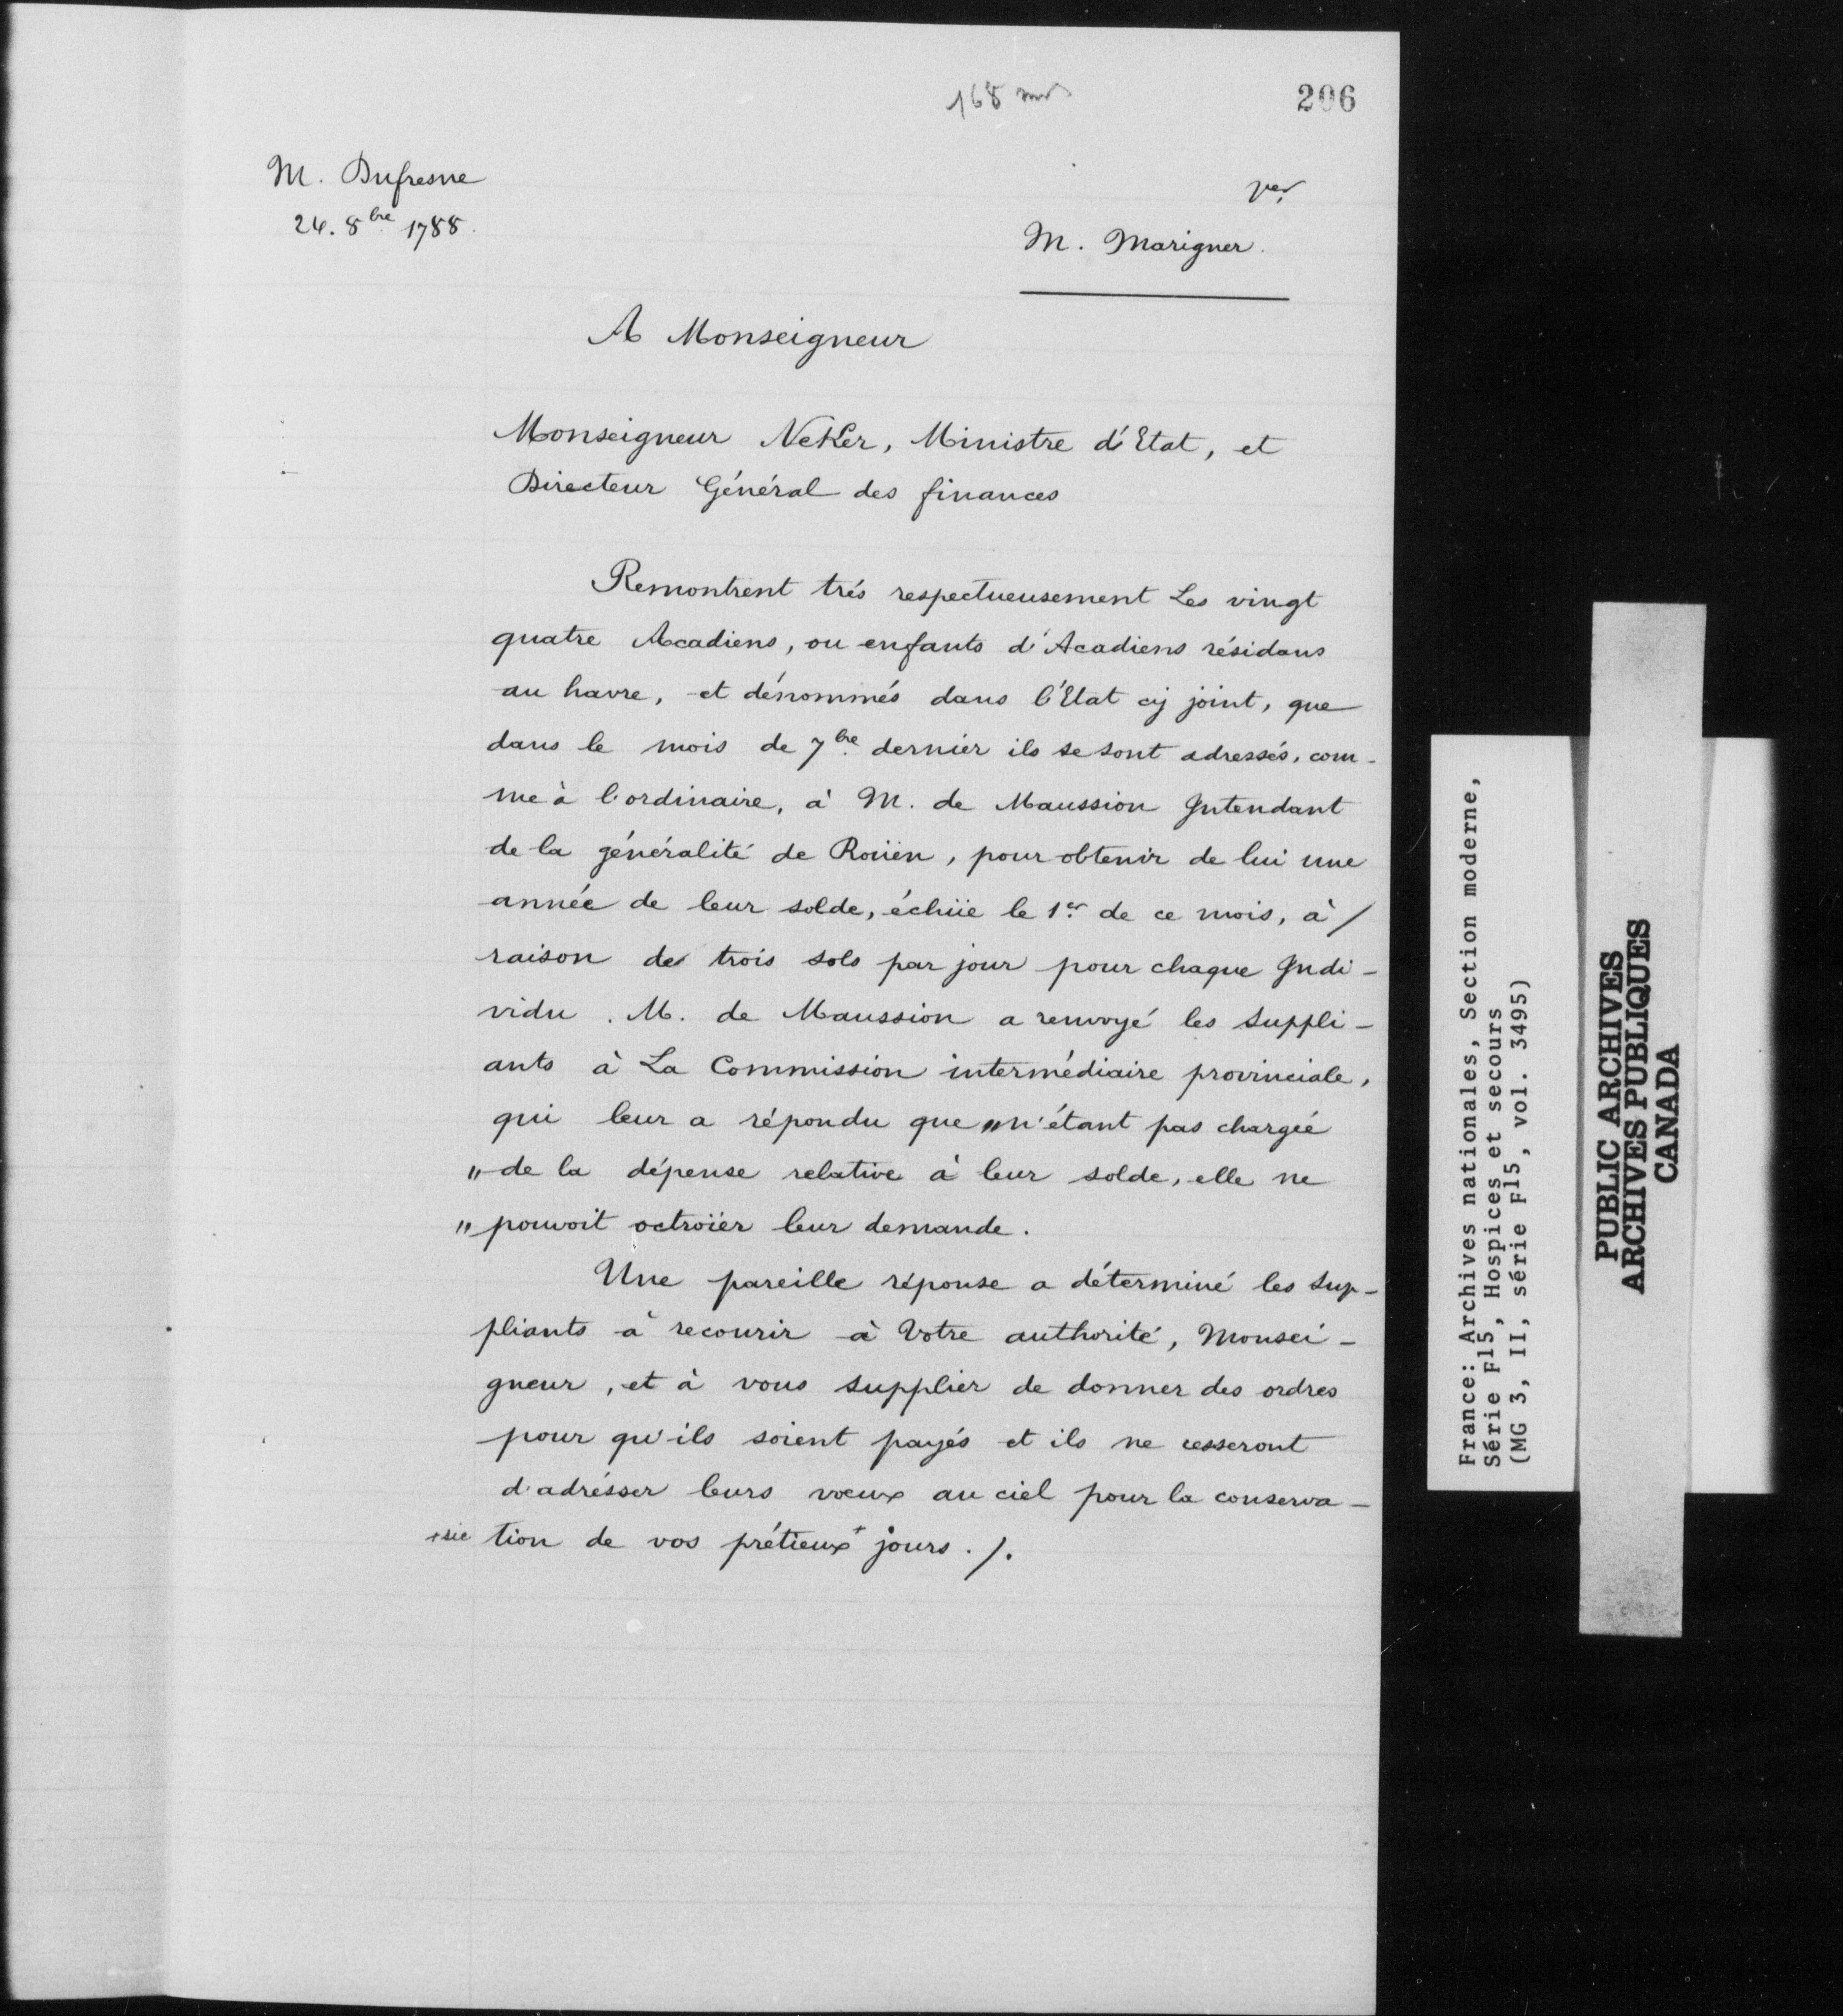 206
M. Dufresne
24. 8bre 1788.
M. Marigner.
A Monseigneur
Monseigneur NeKer, Ministre d'Etat, et
Directeur Général des finances
Remontrent trés respectueusement Les vingt
quatre Acadiens, ou enfants d'Acadiens résidans
au havre, et dénommés dans l'Etat cij joint, que
dans le mois de 7bre dernier ils se sont adressés, com-
me à l'ordinaire, à M. de Maussion Intendant
de la généralité de Roüen, pour obtenir de lui une
année de leur solde, échüe le 1er de ce mois, à /
raison de trois sols par jour pour chaque Indi-
vidu. M. de Maussion a renvoyé les suppli-
ants à La Commission intermédiaire provinciale,
qui leur a répondu que "n'étant pas chargée
"de la dépense relative à leur solde, elle ne
"pouvoit octroïer leur demande.
Une pareille réponse a déterminé les sup-
pliants à recourir à Votre authorité, Monsei-
gneur, et à vous supplier de donner des ordres
pour qu'ils soient payés et ils ne cesseront
d'adrésser leurs voeux au ciel pour la conserva-
+sic tion de vos prétieux+ jours./.
France: Archives nationales, Section moderne,
Série F15, Hospices et secours
(MG 3, II, série F15, vol. 3495)
PUBLIC ARCHIVES
ARCHIVES PUBLIQUES
CANADA